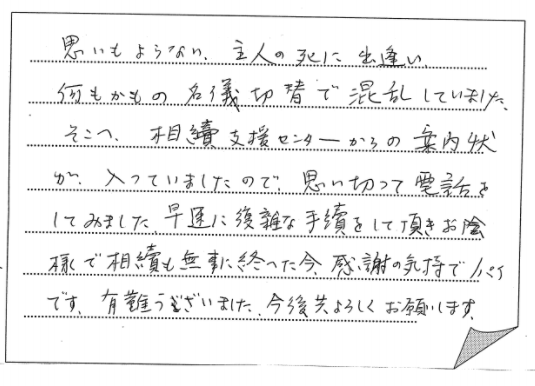 思いもよらない、主人の死に出逢い、
何もかもの名義切替で混乱していました。
そこへ、相続支援センターからの案内状
が、入っていましたので、思い切って電話を
してみました。早速に複雑な手続をして頂きお陰
様で相続も無事に終った今、感謝の気持でいっぱい
です。有難うございました。今後共よろしくお願いします。